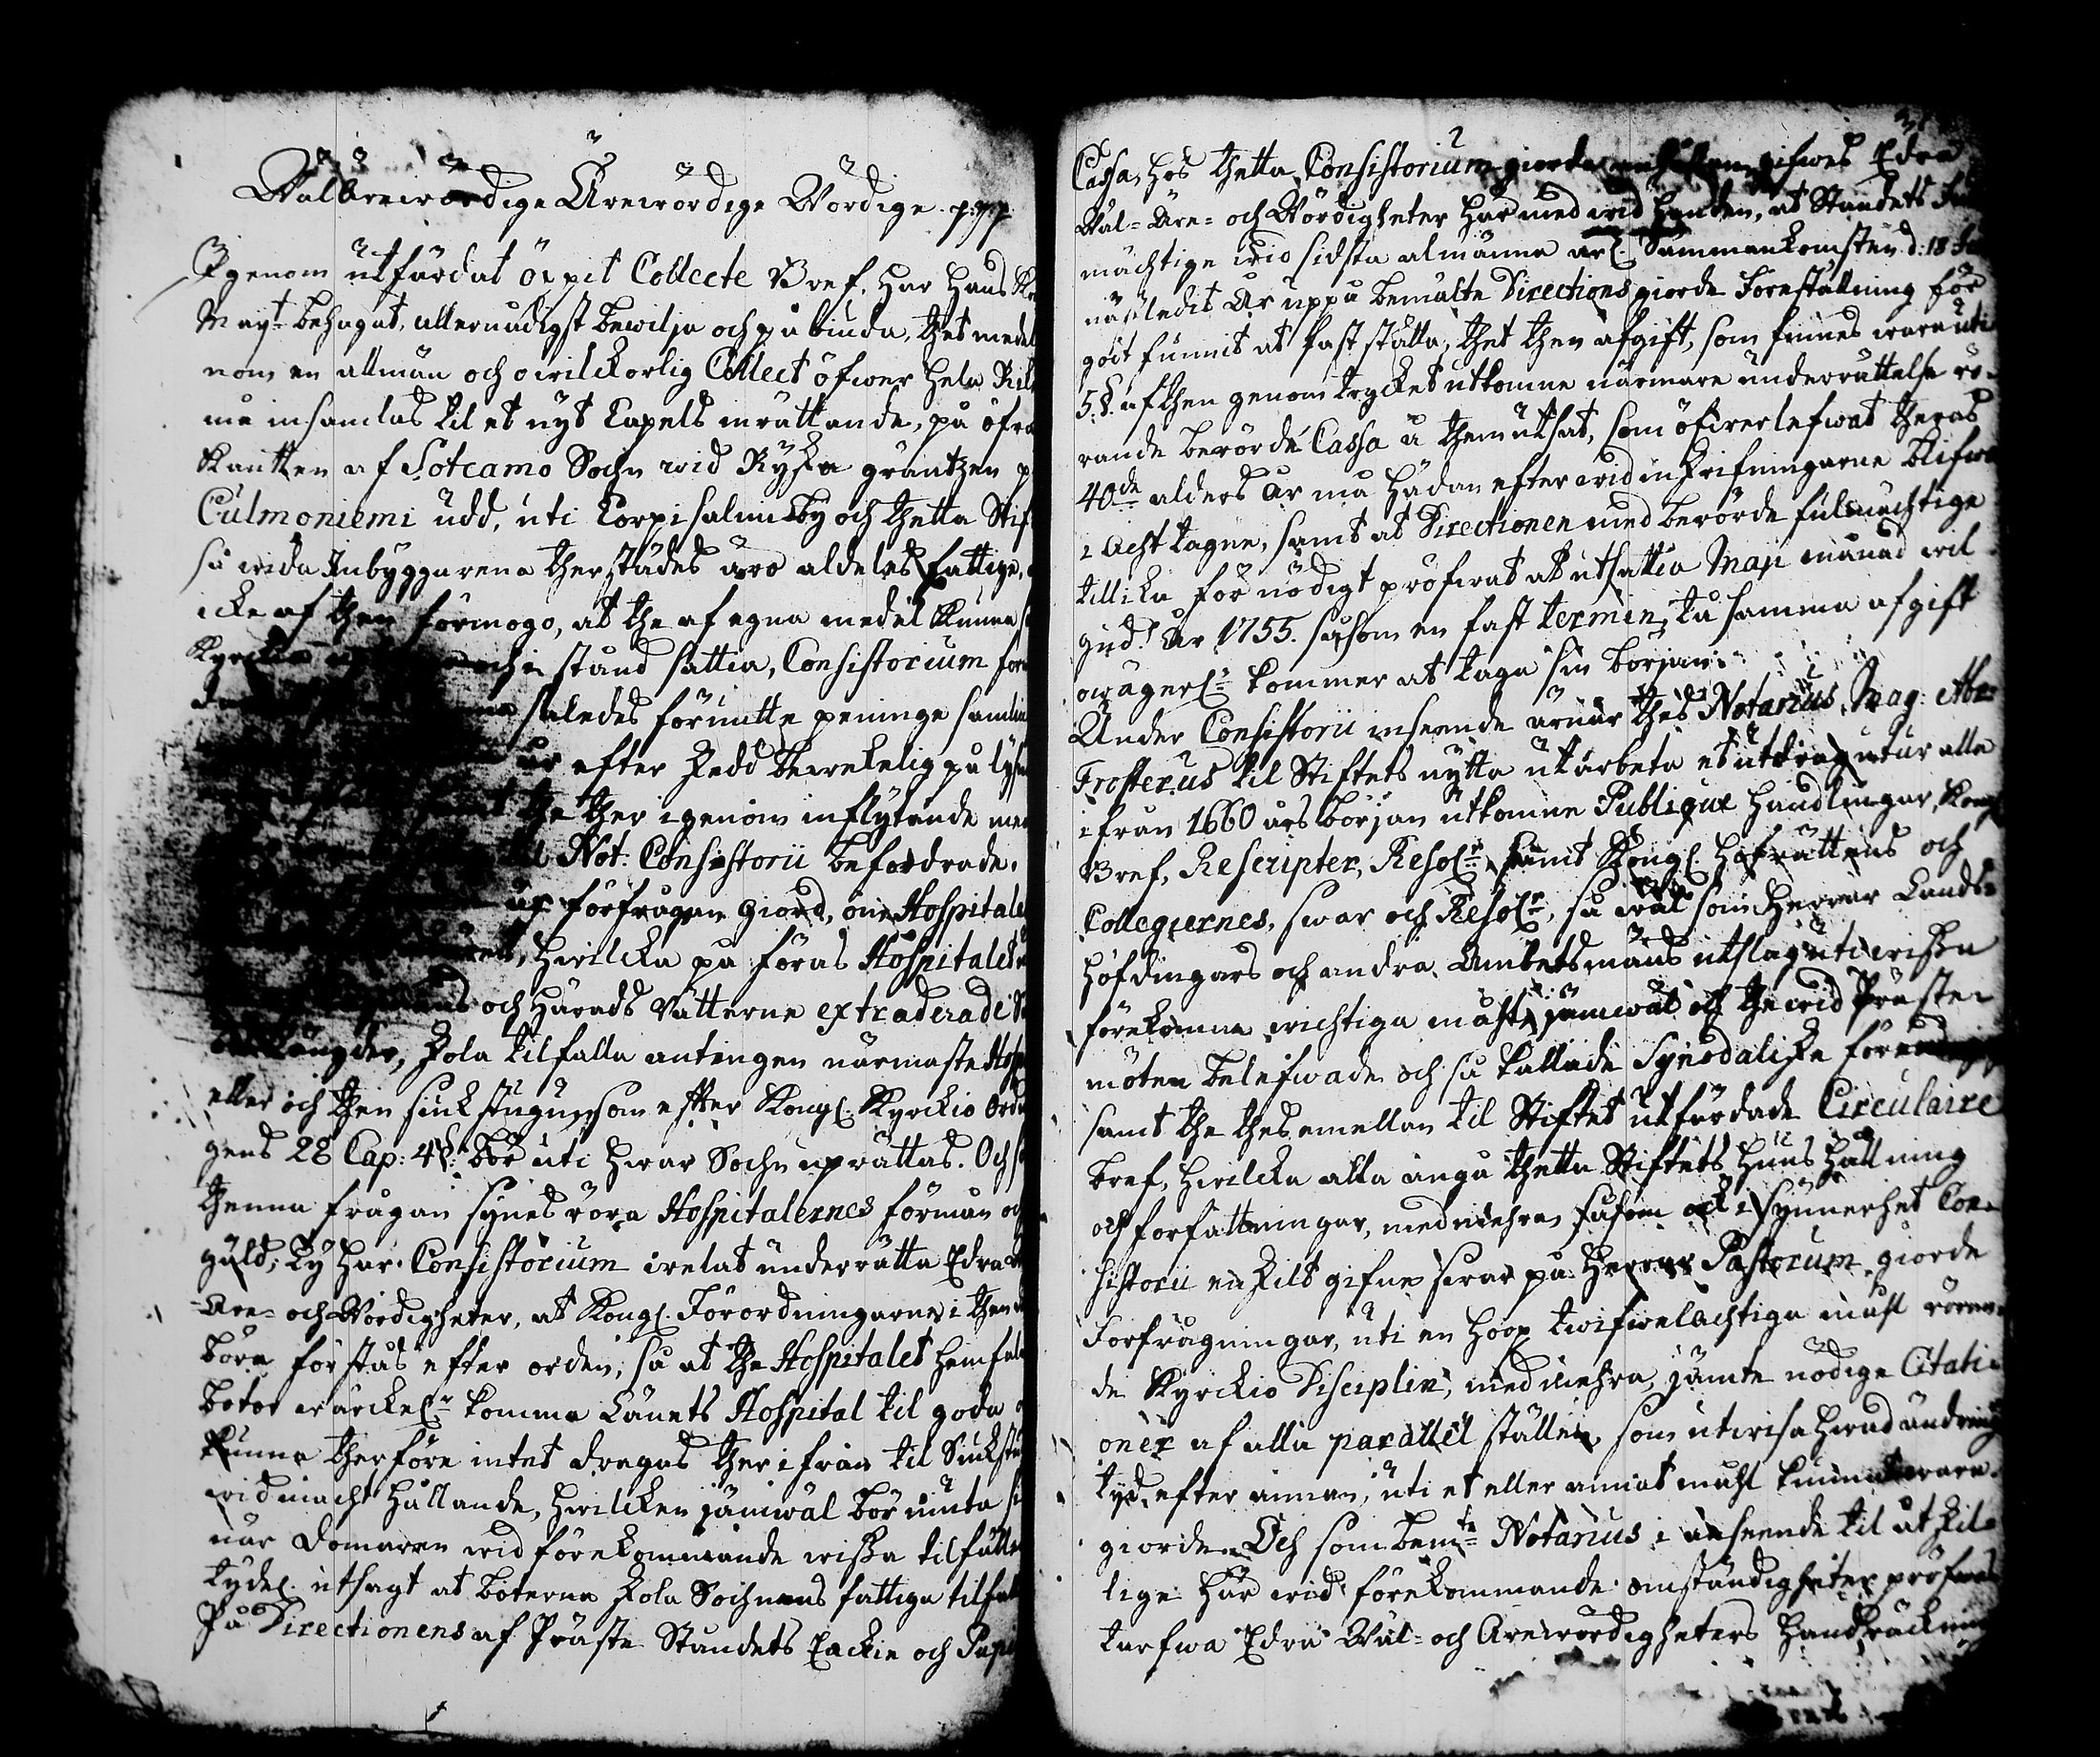 Wälärewördige Ärewördige Wördige p.p.p.
Igenom utfärdat öpit Collecte Bref, har Hans
May:t behagat, allernådigst bewilja och påbiuda, thet medel
nom en allmän och owilckorlig Collect öfwer hela
må insamlas til et nytt Capels inrättande, på öfra
kantten af Sotcamo Sochn wid Ryska gräntzen
Culmoniemi udd, uti Korpisalmi by och thetta Stif
så wida Inbyggarena therstädes äro aldeles fattige,
icke af then förmogo, at the af egna medel kunna
Kyrckia och i stånd sättia, Consistorium
således förmitte peninge samlin
efter skedd bewekelig på lysn
the ther igenom inflytande
Not: Consistorii befordrade.
förfrågan giord, om Hospitale
hwilcka på föras Hospitalet
och Härads Rätterne extraderade
längder, skola tilfalla antingen närmaste Hosp
eller och then siukstugu, som efter Kongl. Kyrckio
gens 28 Cap: 4 §. bör uti hwar Sochn uprättas. Och
thenna frågan synes röra Hospitalernes förmån
guld; Ty har Consistorium welat underrätta Edra
Äre- och Wördigheter, at Kongl. Förordningarne i then
böra förstås efter orden, så at the Hospitalet hemfal
böter wärckel:n komma Länets Hospital til godo
kunna therföre intet dragas ther ifrån til Siukstu
widmacht hållande, hwilcken jämwäl bör niuta
när Domaren wid förekommande wissa tilfälle
tydel. utsagt at böterne skola Sochnens fattiga tilfal
På Directionens af Präste Ståndets Enckie och Pupil
2
Cassa, hos thetta Consistorium giorde gifwes Edra
Wäl- Äre- och Wördigheter härmed wid handen, at Ståndets
mächtige wid sidsta almänna Sammankomsten d: 18
näsledit år uppå bemälte Directions giorde Föreställning för
godt funnit at fastställa, thet then afgift, som finnes wara uti
5. §. af then genom trycket utkomne närmare underrättelse rö-
rande berörde Cassa å them utsat, som öfwerlefwat theras
40de alders år må hädanefter wid inskrifningarne blifwa
i Acht tagne, samt at Directionen med berörde fulmächtige
tillika för nödigt pröfwat at utsättia Maji månad wil
gud! år 1755. såsom en fast termin, tå samma afgift
owägerl:n kommer at taga sin början.
Under Consistorii inseende ärnar thes Notarius Mag: Abr:
Frosterus til Stiftets nytta utarbeta et utdrag utur alla
ifrån 1660 års början utkomne Publique Handlingar, Kongl
Bref, Rescripter, Resol:r samt Kongl. Hofrättens och
Collegiernes, swar och Resol:r, så wäl som Herrar Lands-
höfdingars och andra Ämbetsmäns utslag uti wissa
förekomna wichtiga måhl, jämwäl och the wid Präste-
möten belefwade och så kallade Synodaliske
samt the thesemellan til Stiftet utfärdade Circulaire
bref, hwilcka alla angå thetta Stiftets Hus hållning
och författningar, med mehra, såsom ock i synnerhet Con-
sistorii enskilt gifne swar på Herrar Pastorum giorde
Förfrågningar, uti en hoop twifwelachtiga måhl röran-
de Kyrckio Disciplin, med mehra, jämte nödige Citati-
oner af alla parallel ställen, som utwisa hwad ändring
tyd efter annan, uti et eller annat måhl kunnat wara
giorde. Och som bem:te Notarius i anseende til åtskil-
lige här wid förekommande omständigheter pröfwas
tarfwa Edra Wäl- och Ärewördigheters Handräckning